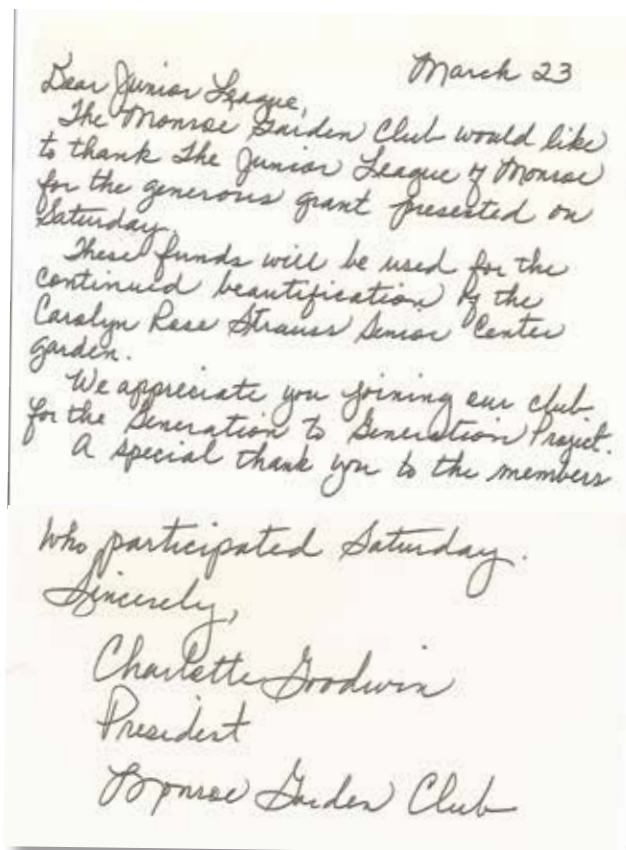 March 23
Dear Junior League,
The Monroe Garden Club would like
to thank The Junior League of Monroe
for the generous grant presented on
Saturday.
These funds will be used for the
continued beautification of the
Carolyn Rose Strauss Senior Center
garden.
We appreciate you joining our club
for the Generation to Generation Project.
A special thank you to the members
who participated Saturday.
Sincerely,
Charlotte Goodwin
President
Monroe Garden Club